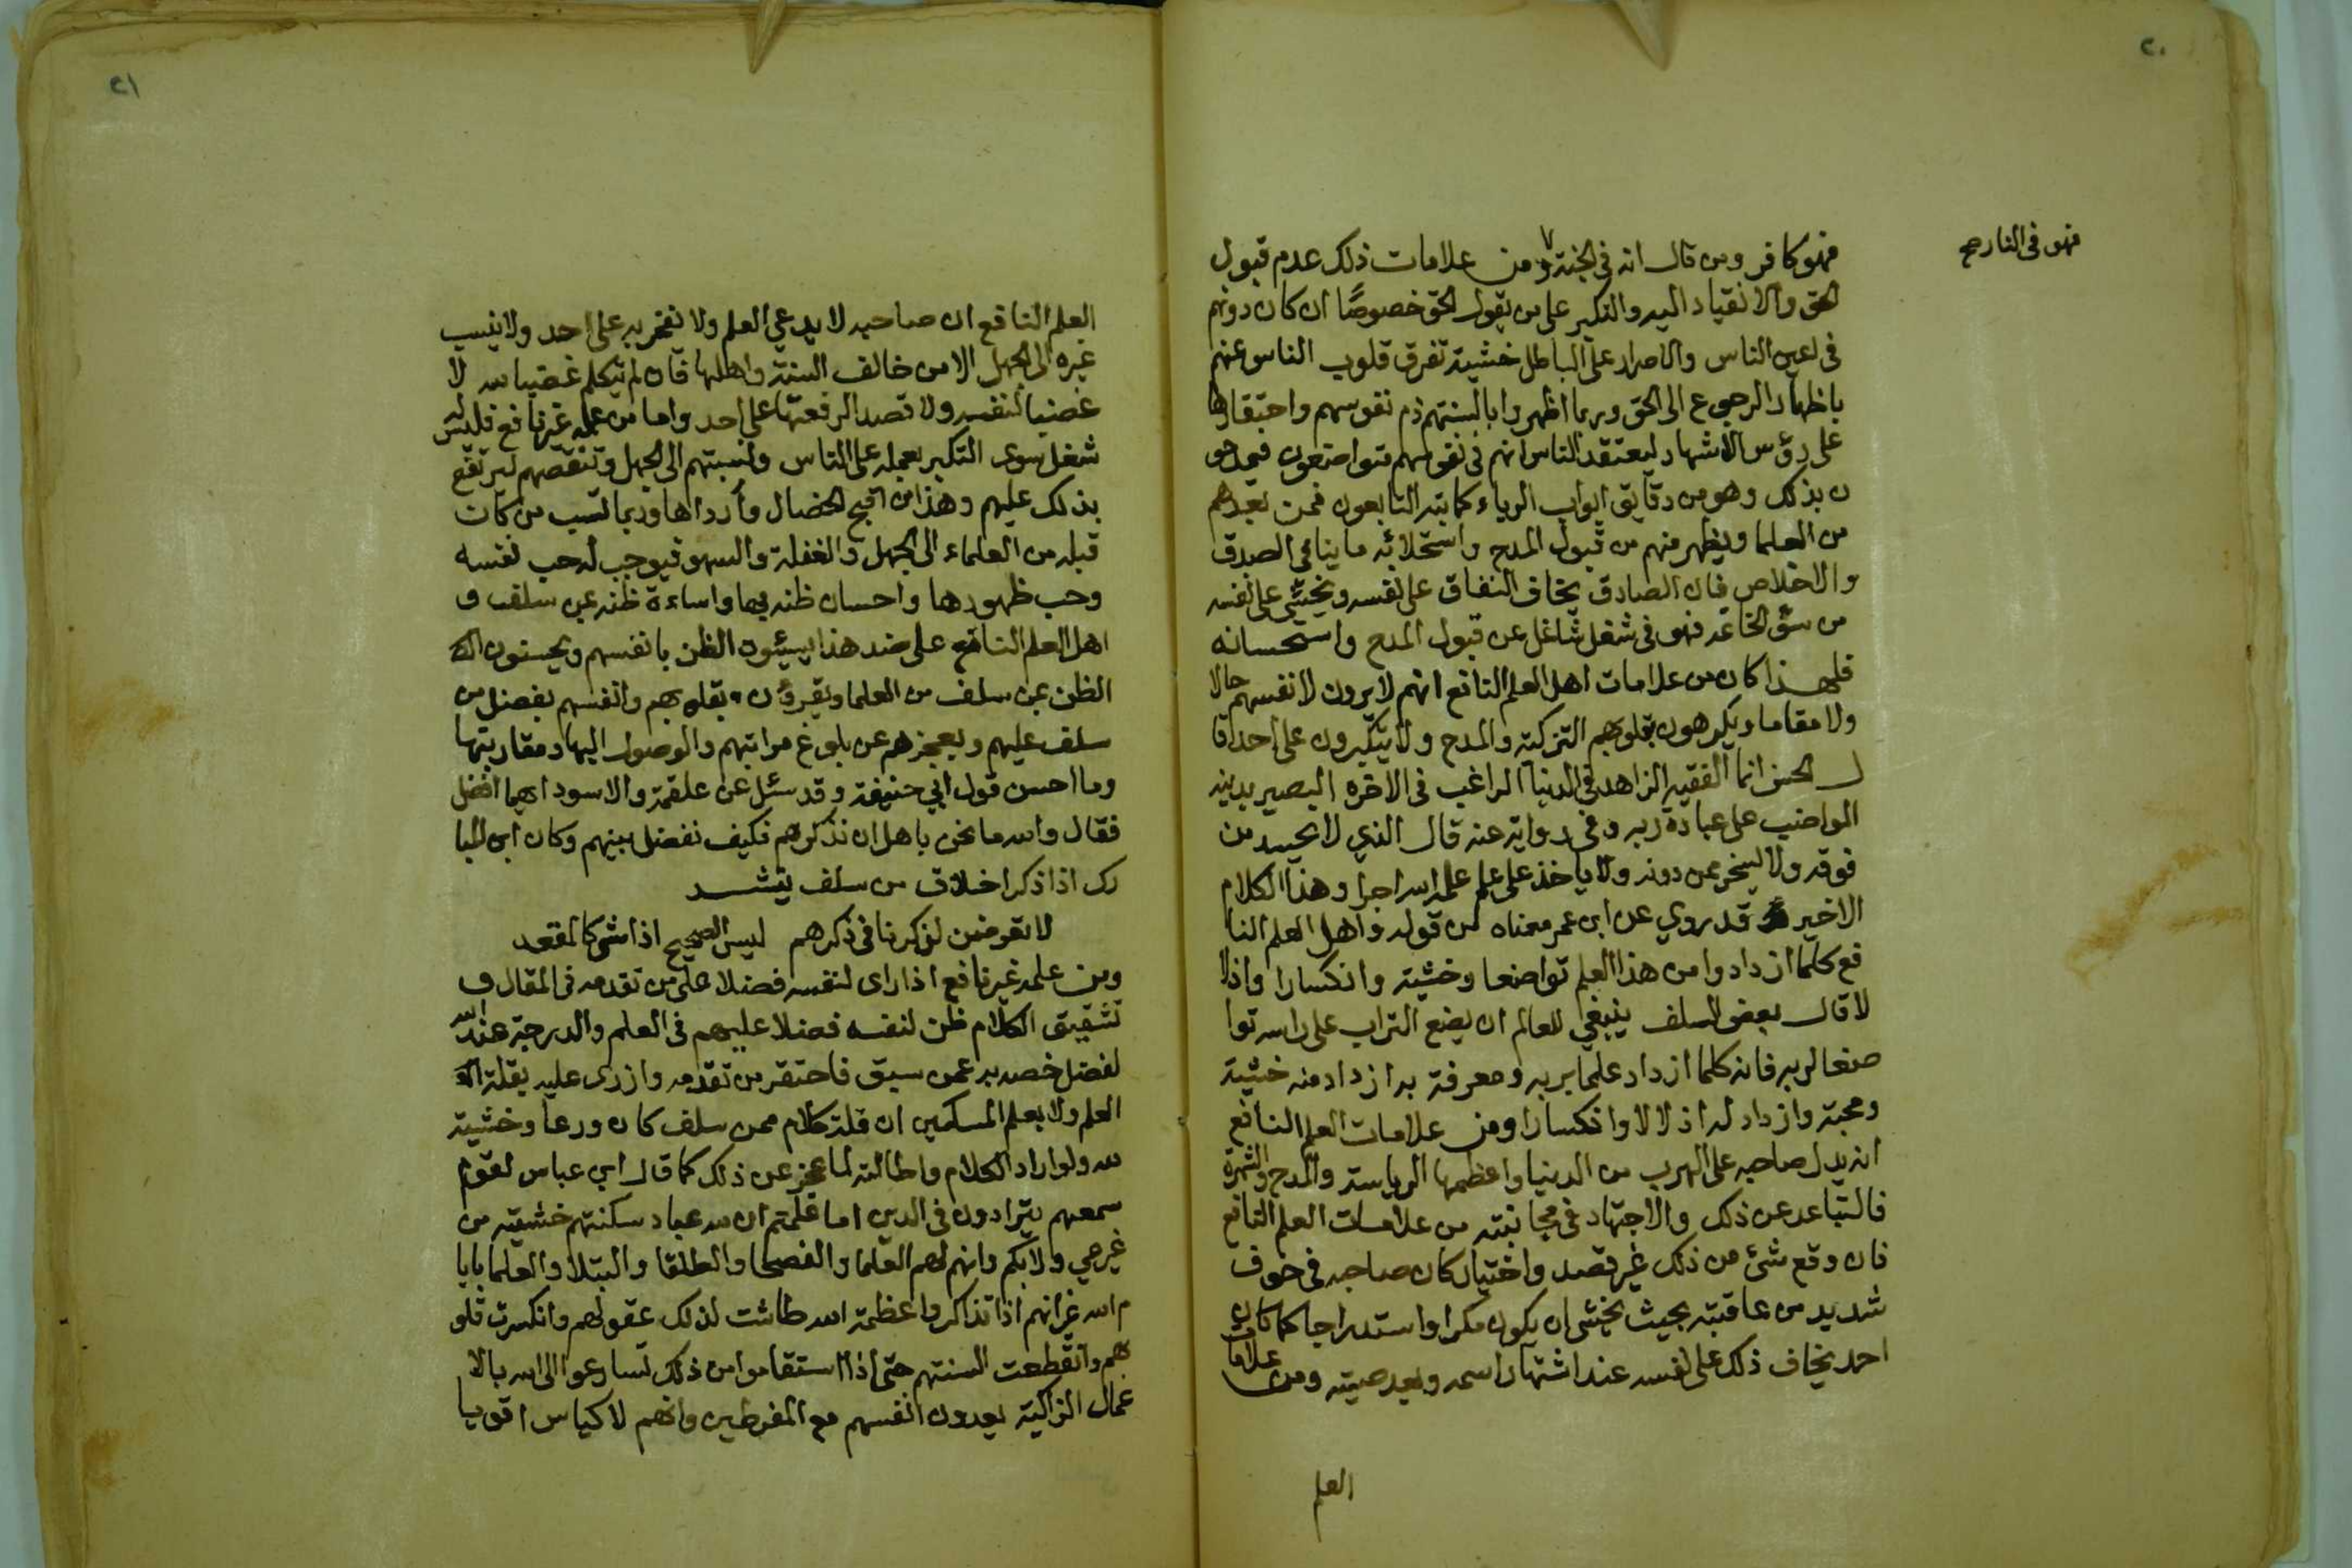 ٢٠
فهو كافر ومن قال انه في الجنة ومن علامات ذلك عدم قبول
فهو في النار صح
الحق والانقياد اليه والتكبر على من يقول الحق خصوصًا ان كان دونهم
في اعين الناس والاصرار على الباطل خشية تفرق قلوب الناس عنهم
باظهار الرجوع الى الحق وربما اظهروا بالسنتهم ذم نفوسهم واحتقارها
على رؤس الاشهاد ليعتقد الناس انهم في نفوسهم متواضعون فيمدحو
ن بذلك وهو من دقايق ابواب الرياء كما نبه التابعون فمن بعدهم
من العلما ويظهر منهم من قبول المدح واستحلائه ما ينافي الصدق
والاخلاص فان الصادق يخاف النفاق على نفسه ويخشى على نفسه
من سؤ الخاتمة فهو في شغل شاغل عن قبول المدح واستحسانه
فلهذا كان من علامات اهل العلم النافع انهم لا يرون لانفسهم حالا
ولا مقاما ويكرهون بقلوبهم التزكية والمدح ولا يتكبرون على احد قا
ل الحسن انما الفقيه الزاهد في الدنيا الراغب في الاخره البصير بدينه
المواضب على عبادة ربه وفي رواية عنه قال الذي لا يحسد من
فوقه ولا يسخر ممن دونه ولا ياخذ على علم علمه الله اجرا وهذا الكلام
الاخير قد روي عن ابن عمر معناه من قوله واهل العلم النا
فع كلما ازدادوا من هذا العلم تواضعا وخشية وانكسارا واذلا
لا قال بعض السلف ينبغي للعالم ان يضع التراب على راسه توا
ضعا لربه فانه كلما ازداد علما بربه ومعرفة به ازداد منه خشية
ومحبة وازداد له اذلالا وانكسارا ومن علامات العلم النافع
انه يدل صاحبه على الهرب من الدنيا واعظمها الرياسة والمدح والشهرة
فالتباعد عن ذلك والاجتهاد في مجانبته من علامات العلم النافع
فان وقع شئ من ذلك غير قصد واختيار كان صاحبه في خوف
شديد من عاقبته بحيث يخشى ان يكون مكرا واستدراجا كما كان
احمد يخاف ذلك على نفسه عند اشتهار اسمه وبعد صيته ومن علامات
العلم
٢١
العلم النافع ان صاحبه لا يدعي العلم ولا يفخر به على احد ولا ينسب
غيره الى الجهل الا من خالف السنة واهلها فان لم يتكلم غضبا لله لا
غضبا لنفسه ولا قصد الرفعتها على احد واما من علمه غير نافع فليس له
شغل سوى التكبر بعمله على الناس ونسبتهم الى الجهل وتنقصهم ليرتفع
بذلك عليهم وهذا من اقبح الخصال وأرداها وربما نسب من كان
قبله من العلماء الى الجهل والغفلة والسهو فيوجب له حب نفسه
وحب ظهورها واحسان ظنه بها واساءة ظنه عن سلف و
اهل العلم النافع على ضد هذا يسيئون الظن بانفسهم ويحسنون
الظن عن سلف من العلما ويقرون بقلوبهم وانفسهم بفضل من
سلف عليهم وبعجزهم عن بلوغ مراتبهم والوصول اليها ومقاربتها
وما احسن قول ابي حنيفة وقد سئل عن علقمة والاسود ايهما افضل
فقال والله ما نحن باهل ان نذكرهم فكيف نفضل بينهم وكان ابن المبا
رك اذا ذكر اخلاق من سلف ينشد
لا تعرضن لذكرنا في ذكرهم ليس الصحيح اذا مشى كالمقعد
ومن علمه غير نافع اذا راى لنفسه فضلا على من تقدمه في المقال و
تشقيق الكلام ظن لنفسه فضلا عليهم في العلم والدرجة عند الله
لفضل خصه به عمن سبق فاحتقر من تقدمه وازرى عليه بقلة
العلم ولا يعلم المسكين ان قلة كلام ممن سلف كان ورعا وخشية
لله ولو اراد الكلام واطالته لما عجز عن ذلك كما قال ابن عباس لقوم
سمعهم يترادون في الدين اما علمتم ان لله عباد سكنتهم خشيته من
غير عي ولا بكم وانهم لهم العلما والفصحا والطلقا والنبلا والعلما بايا
م الله غير انهم اذا تذاكروا عظمة الله طاشت لذلك عقولهم وانكسرت قلو
بهم وانقطعت السنتهم حتى اذا استقاموا من ذلك تسارعوا الى الله بالا
عمال الزاكية يعدون انفسهم مع المفرطين وانهم لاكياس اقويا